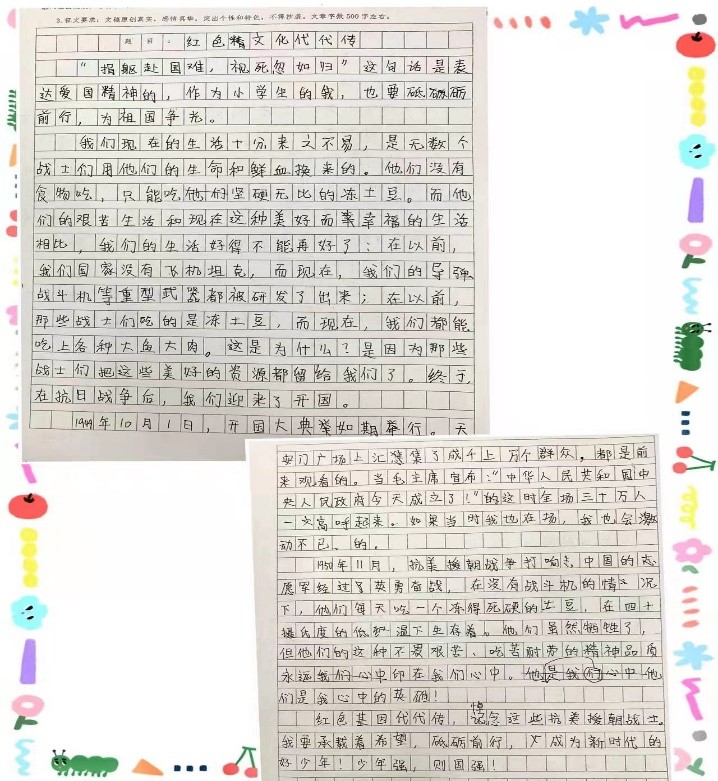 3.征文要求:文稿原创真实,感情真挚,突出个性和特色,不得抄袭。文章字数500字左右。
题目:红色精文化代代传
“捐躯赴国难,视死忽如归”这句话是表
达爱国精神的,作为小学生的我,也要砥砺
前行,为祖国争光。
我们现在的生活十分来之不易,是无数个
战士们用他们的生命和鲜血换来的。他们没有
食物吃,只能吃他们坚硬无比的冻土豆。而他
们的艰苦生活和现在这种美好而幸福的生活
相比,我们的生活好得不能再好了:在以前,
我们国家没有飞机坦克,而现在,我们的导弹
战斗机等重型武器都被研发了出来;在以前,
那些战士们吃的是冻土豆,而现在,我们都能
吃上各种大鱼大肉。这是为什么?是因为那些
战士们把这些美好的资源都留给我们了。终于,
在抗日战争后,我们迎来了开国。
1949年10月1日,开国大典如期举行。天
安门广场上汇集了成千上万个群众,都是前
来观看的。当毛主席宣布:“中华人民共和国中
央人民政府今天成立了!”的这时全场三十万人
一齐高呼起来。如果当时我也在场,我也会激
动不已的。
1950年11月,抗美援朝战争打响,中国的志
愿军经过了英勇奋战,在没有战斗机的情况
下,他们每天吃一个冻得死硬的土豆,在四十
摄氏度的低温下生存着。他们虽然牺牲了,
但他们的这种不畏艰苦、吃苦耐劳的精神品质
永远我们心中印在我们心中。他是我们心中他
们是我心中的英雄!
红色基因代代传,悼念这些抗美援朝战士。
我要承载着希望,砥砺前行,成为新时代的
好少年!少年强,则国强!